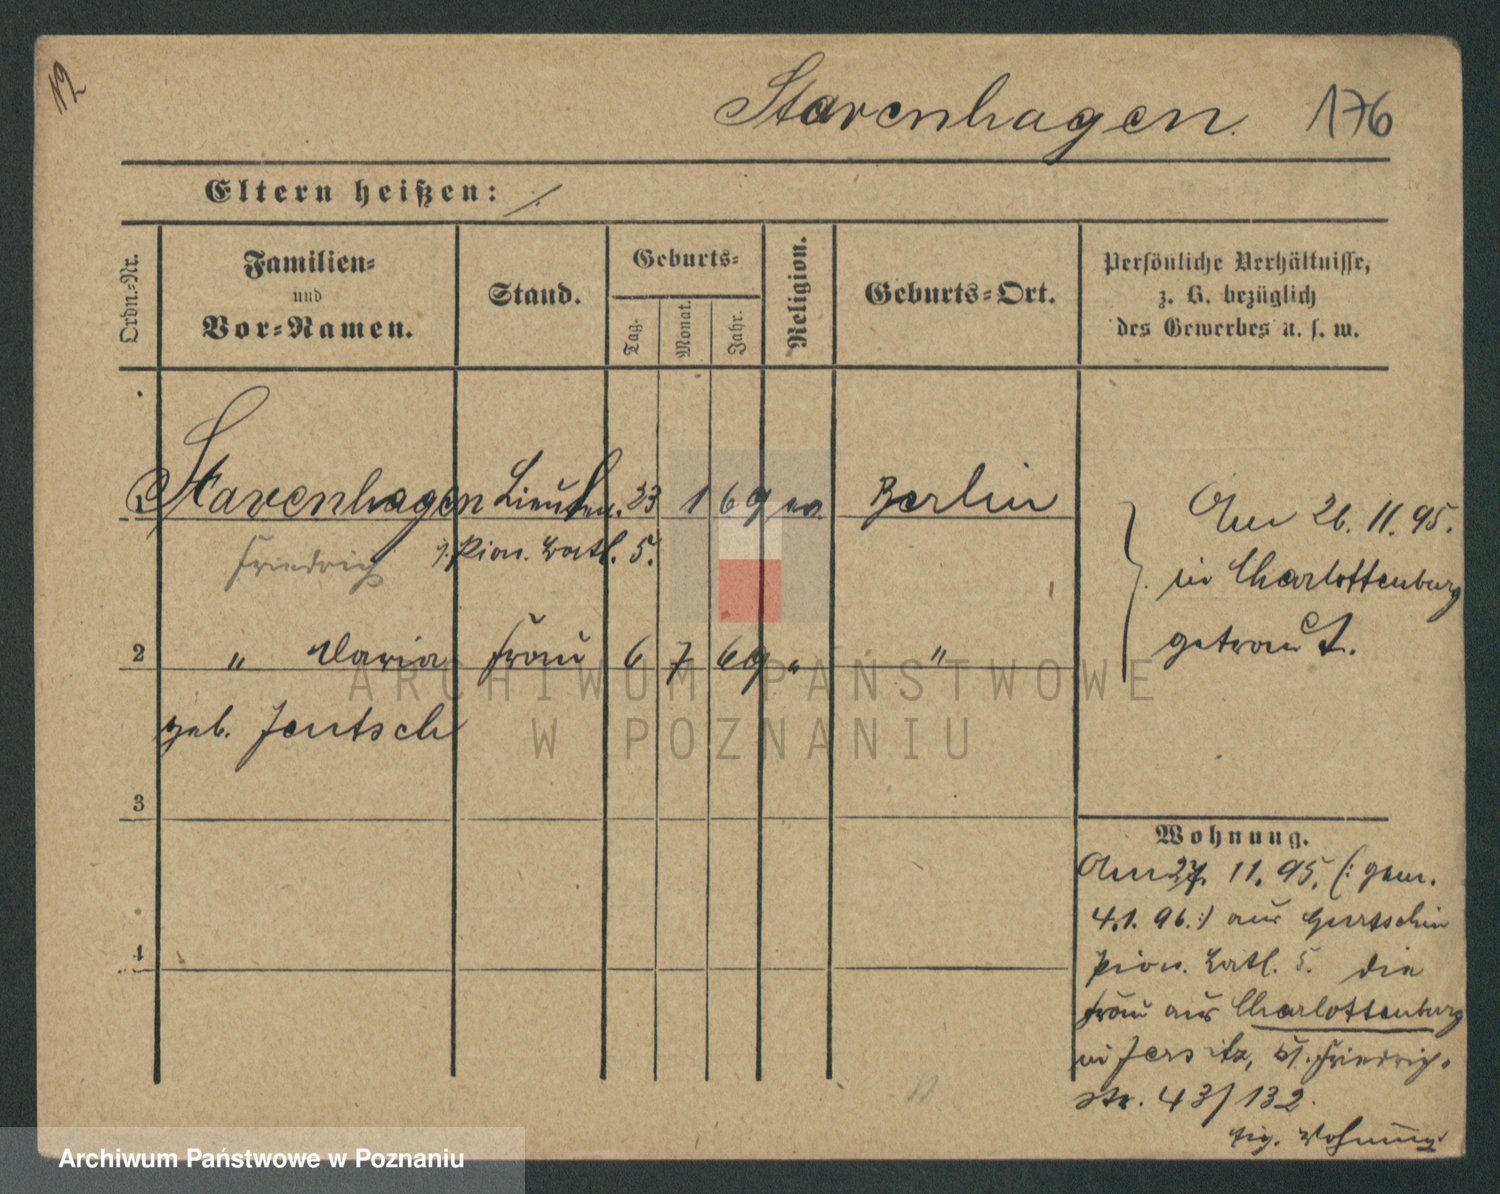 12
Stavenhagen. 176
Eltern heißen: ./.
Ordn.-Nr.
Familien-
und
Vor-Namen.
Stand.
Geburts-
Tag.
Monat.
Jahr.
Religion.
Geburts-Ort.
Persönliche Verhältnisse,
z. B. bezüglich
des Gewerbes u. s. w.
Stavenhagen Lieuten. 23 1 69 ev. Berlin
Friedrich Pion. Batl. 5.
Am 26. 11. 95.
in Charlottenburg
getraut.
2 " Maria Frau 6 7 69 " "
geb. Jentsch
3
4
Wohnung.
Am 27. 11. 95. (: gem.
4.1. 96 :) aus
Pion. Batl. 5. die
Frau aus Charlottenburg
in Jersitz, Friedrich-
str. 43/132.
eig. Wohnung
ARCHIWUM PAŃSTWOWE
W POZNANIU
Archiwum Państwowe w Poznaniu